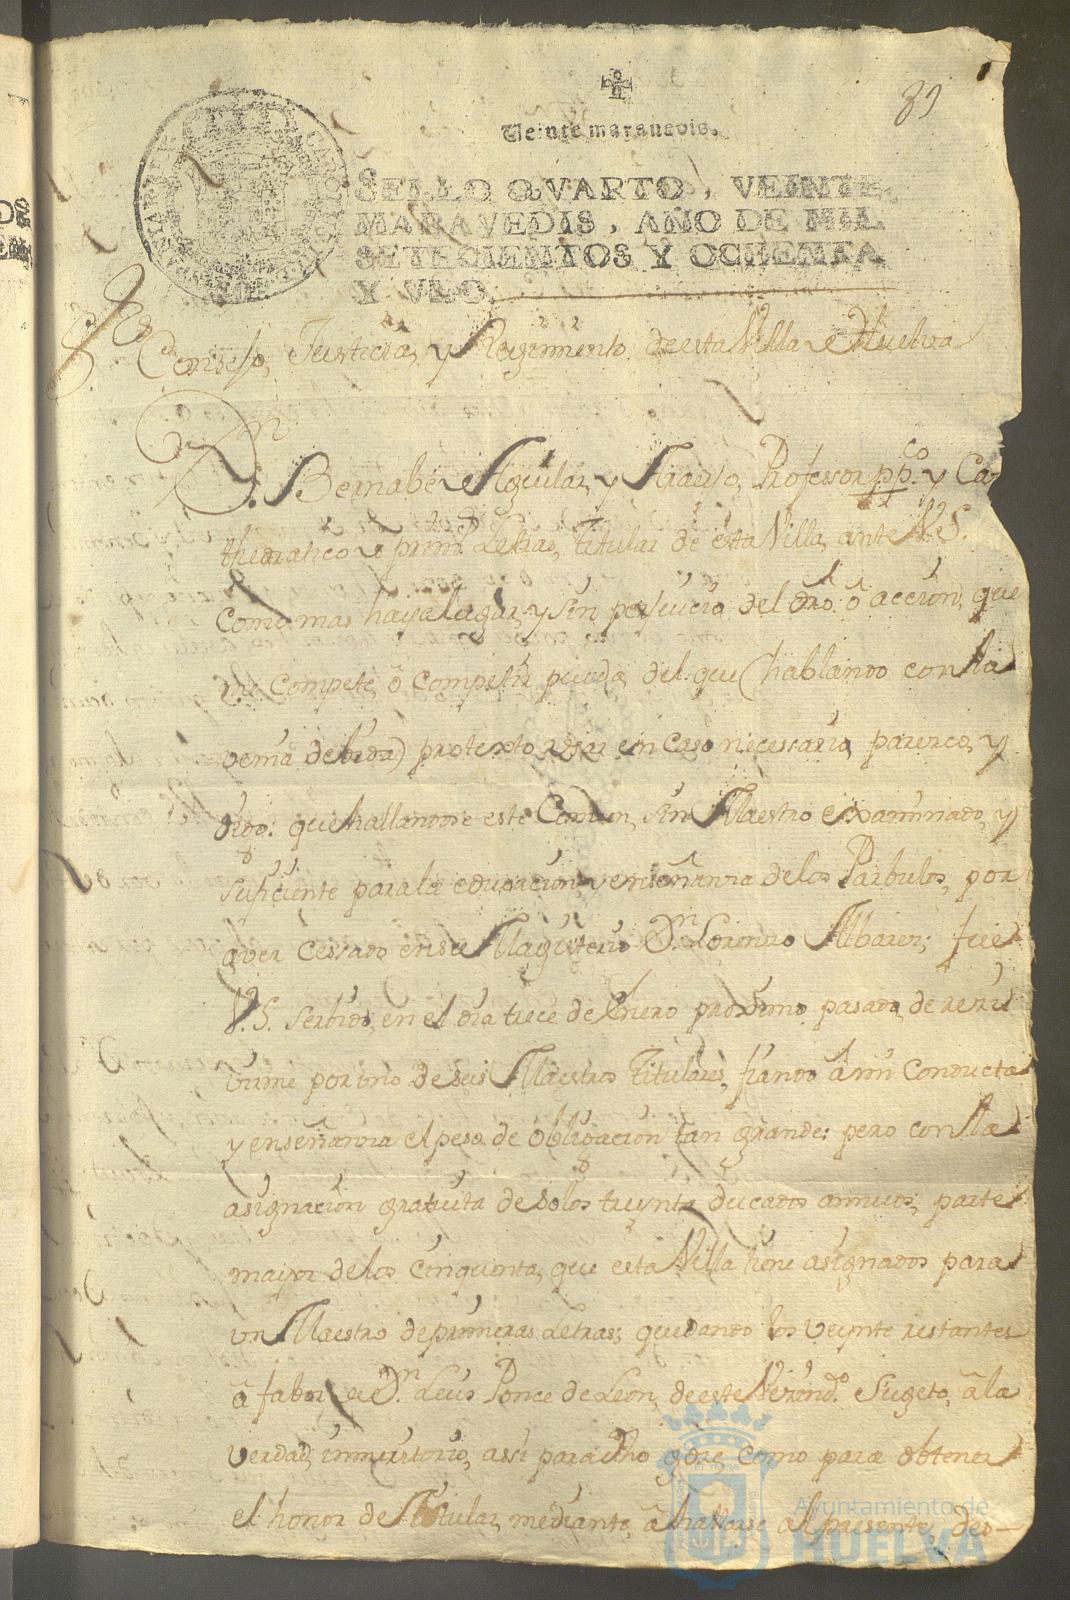 89
Veinte maravedis.
SELLO QVARTO, VEINTE
MARAVEDIS, AÑO DE MIL
SETECIENTOS Y OCHENTA
Y VNO.
Consejo, Justicia, y Regimiento de esta Villa de Huelva
Dn. Bernabé Aguilar, y Araujo, Professor ppco. y Ca
thedratico de prims. Letras, Titular de esta Villa, ante V.S.
como mas haya lugar, y sin perjuicio del dro. ô acción, que
me compete, ô competir pueda, del que (hablando con la
venia debida) protexto usar en caso necessario, parezco, y
digo: que hallandose este Comun, sin Maestro examinado, y
suficiente para la educacion, y enseñanza de los Parbulos, por
aver cessado en su Magisterio Dn. Lorenzo Albarez; fue
V.S. serbido, en el dia trece de Enero proximo pasado, de reci
virme por uno de sus Maestros Titulares, fiando â mi conducta
y enseñanza el peso de obligacion tan grande: pero con la
asignacion gratuita de solos treynta ducados annuos, parte
mayor de los cinquenta, que esta Villa tiene asignados para
un Maestro de primeras Letras; quedando los veynte restantes
â fabor de Dn. Luis Ponce de Leon, de este Vecindo. Sugeto, â la
verdad, inmeritorio, assi para dho goze, como para obtener
el honor de Titular, mediante, â hallarse al presente, des-
Ayuntamiento de
HUELVA